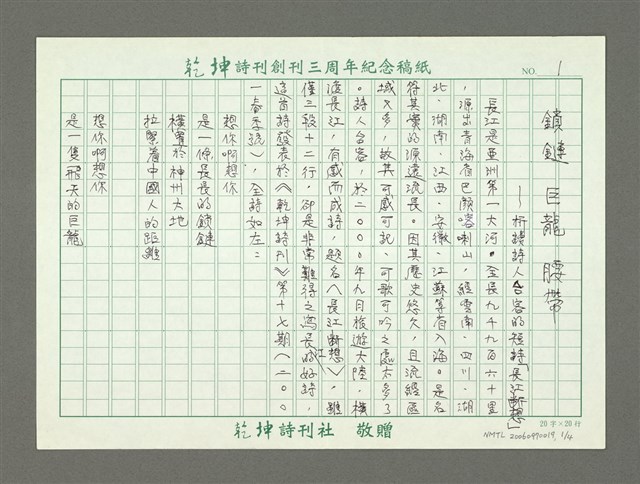 乾坤詩刊創刊三周年紀念稿紙
NO. 1
鎖鏈 巨龍 腰帶
—析讀詩人台客的短詩「長江斷想」
長江是亞洲第一大河。全長九千九百六十里
,源出青海省巴顏喀喇山,經雲南、四川、湖
北、湖南、江西、安徽、江蘇等省入海。是名
符其實的源遠流長。因其歷史悠久,且流經區
域太多,故其可感可記、可歌可吟之處太多了
。詩人台客,於二○○○年九月旅遊大陸,橫
渡長江,有感而成詩,題名〈長江斷想〉,雖
僅三段十二行,卻是非常難得之寫長江的好詩,
這首詩發表於《乾坤詩刊》第十七期(二○○
一春季號),全詩如左:
想你啊想你
是一條長長的鎖鏈
橫臥於神州大地
拉緊着中國人的距離
想你啊想你
是一隻飛天的巨龍
20字×20行
乾坤詩刊社 敬贈
NMTL 20060990019 1/4